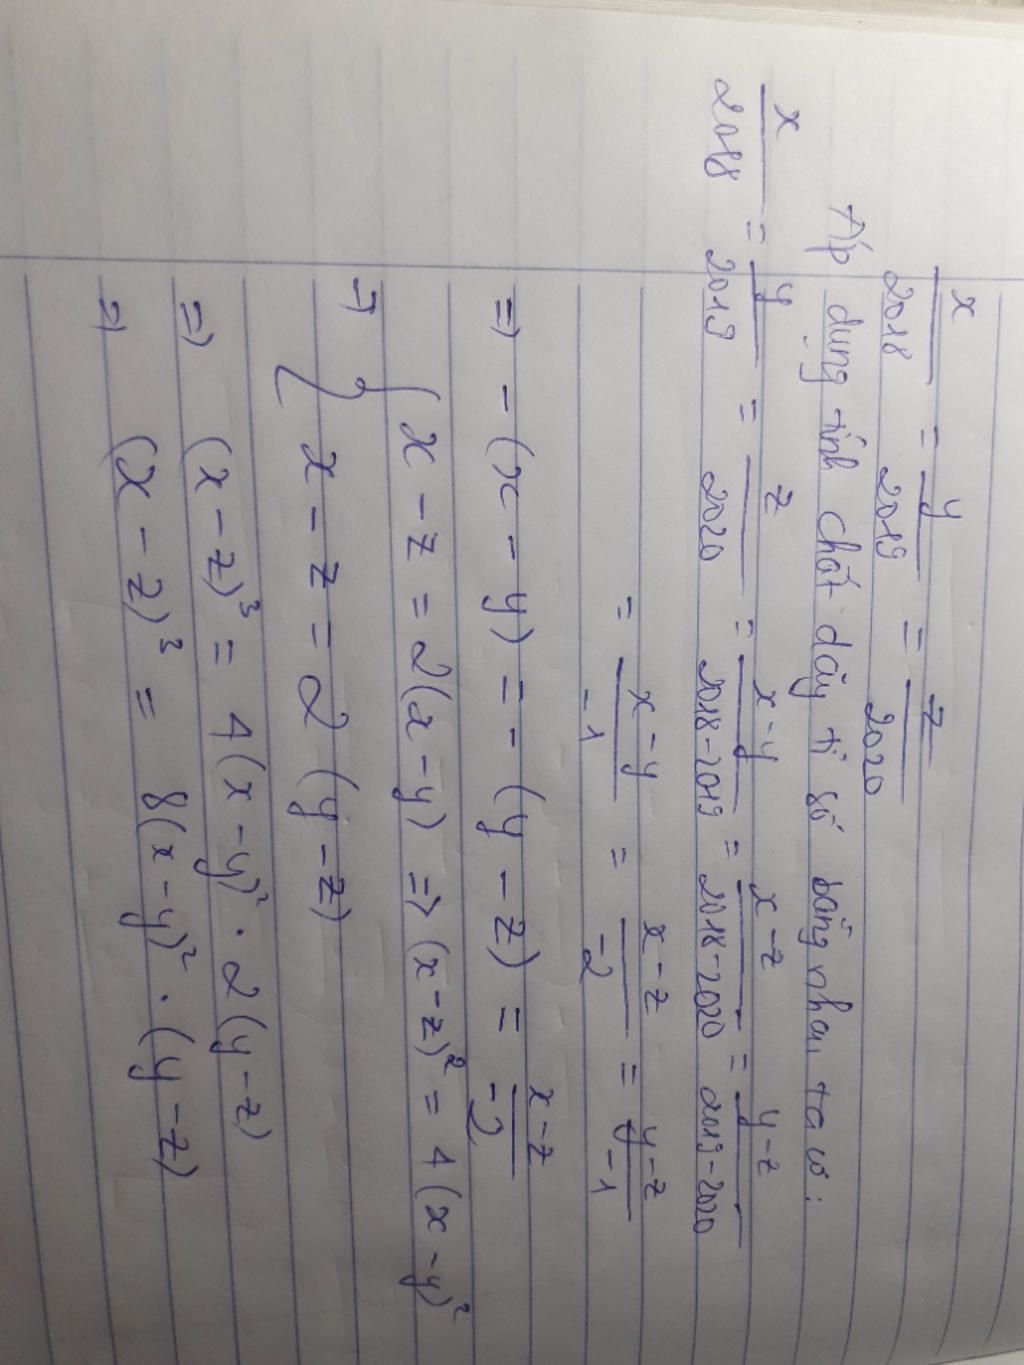 x/2018 = y/2019 = z/2020
Áp dụng tính chất dãy tỉ số bằng nhau, ta có:
x/2018 = y/2019 = z/2020 = x-y/2018-2019 = x-z/2018-2020 = y-z/2019-2020
= x-y/-1 = x-z/-2 = y-z/-1
=> -(x-y) = -(y-z) = x-z/-2
=> { x-z = 2(x-y) => (x-z)² = 4(x-y)²
x-z = 2(y-z)
=> (x-z)³ = 4(x-y)² . 2(y-z)
=> (x-z)³ = 8(x-y)² . (y-z)